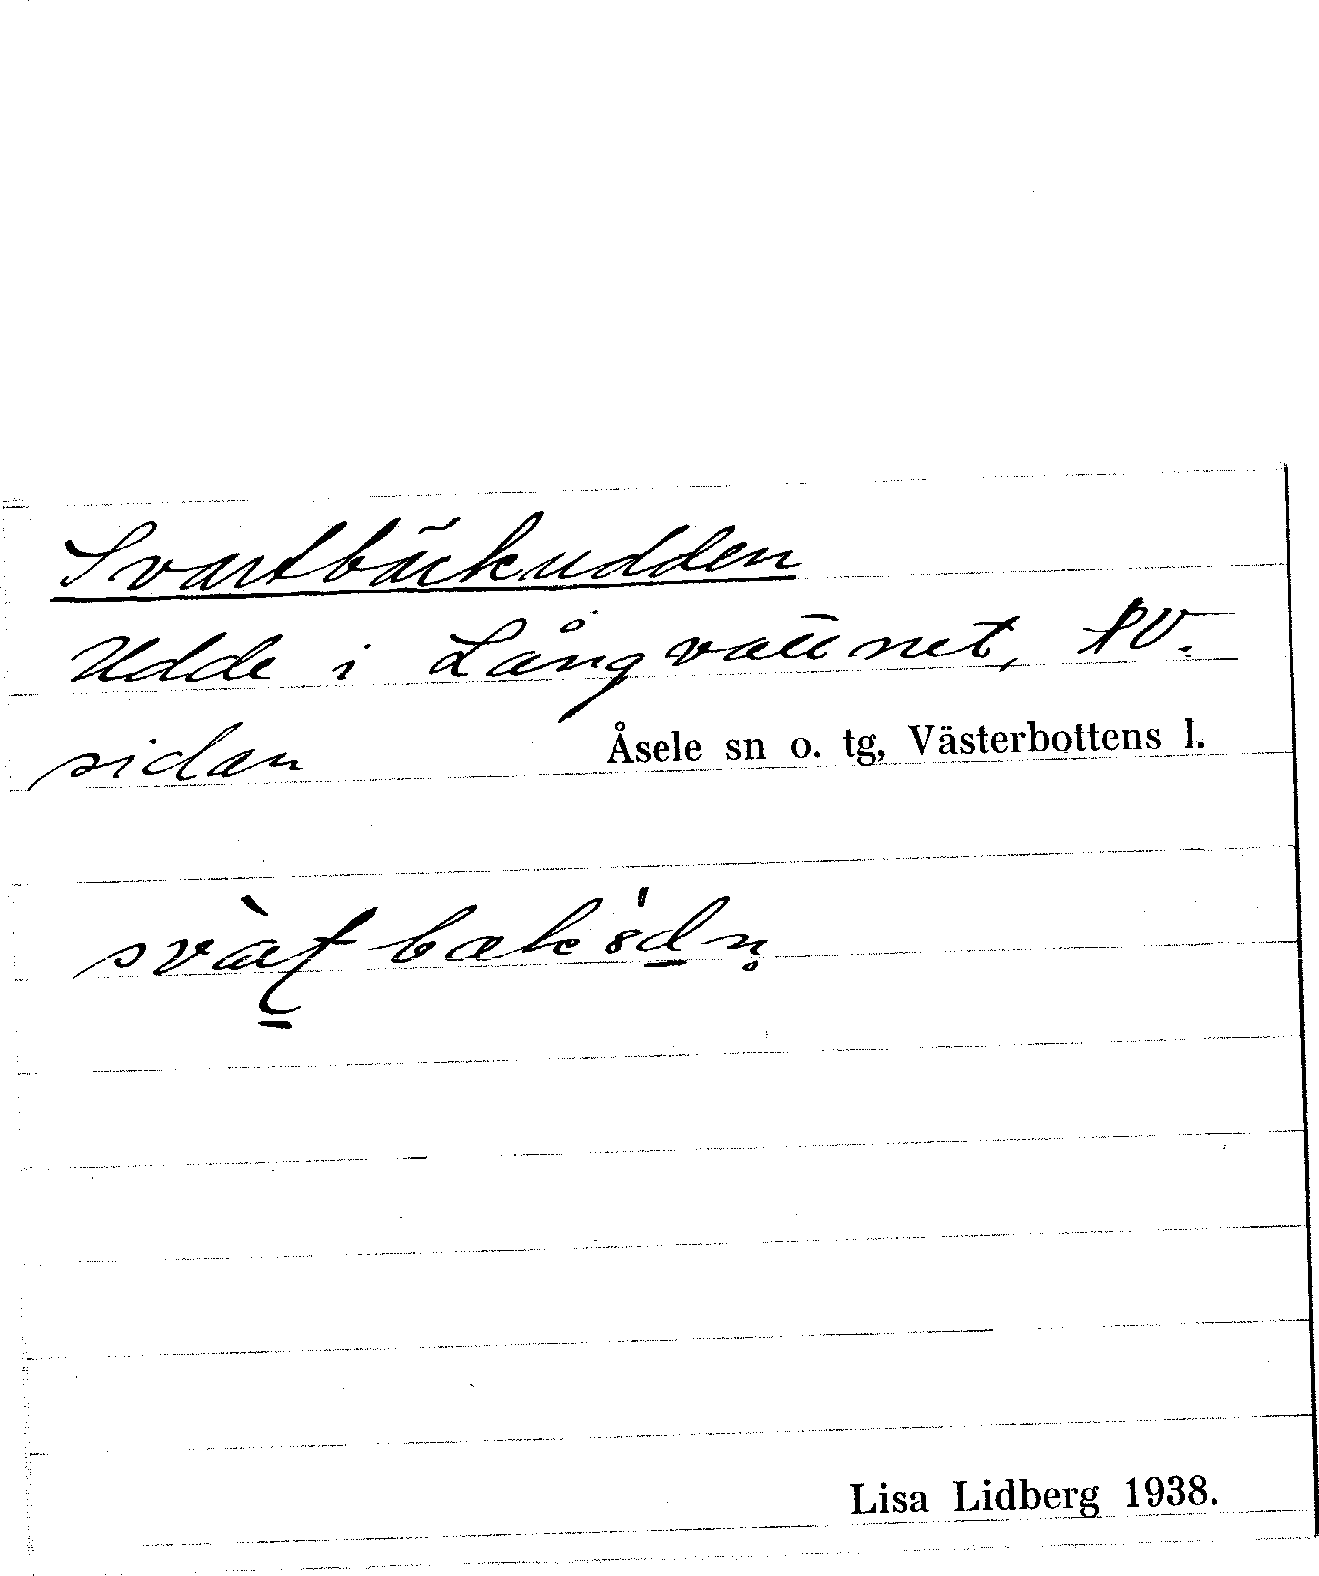 Svartbäckudden
Udde i Långvattnet, NV.
sidan Åsele sn o. tg, Västerbottens l.
Lisa Lidberg 1938.